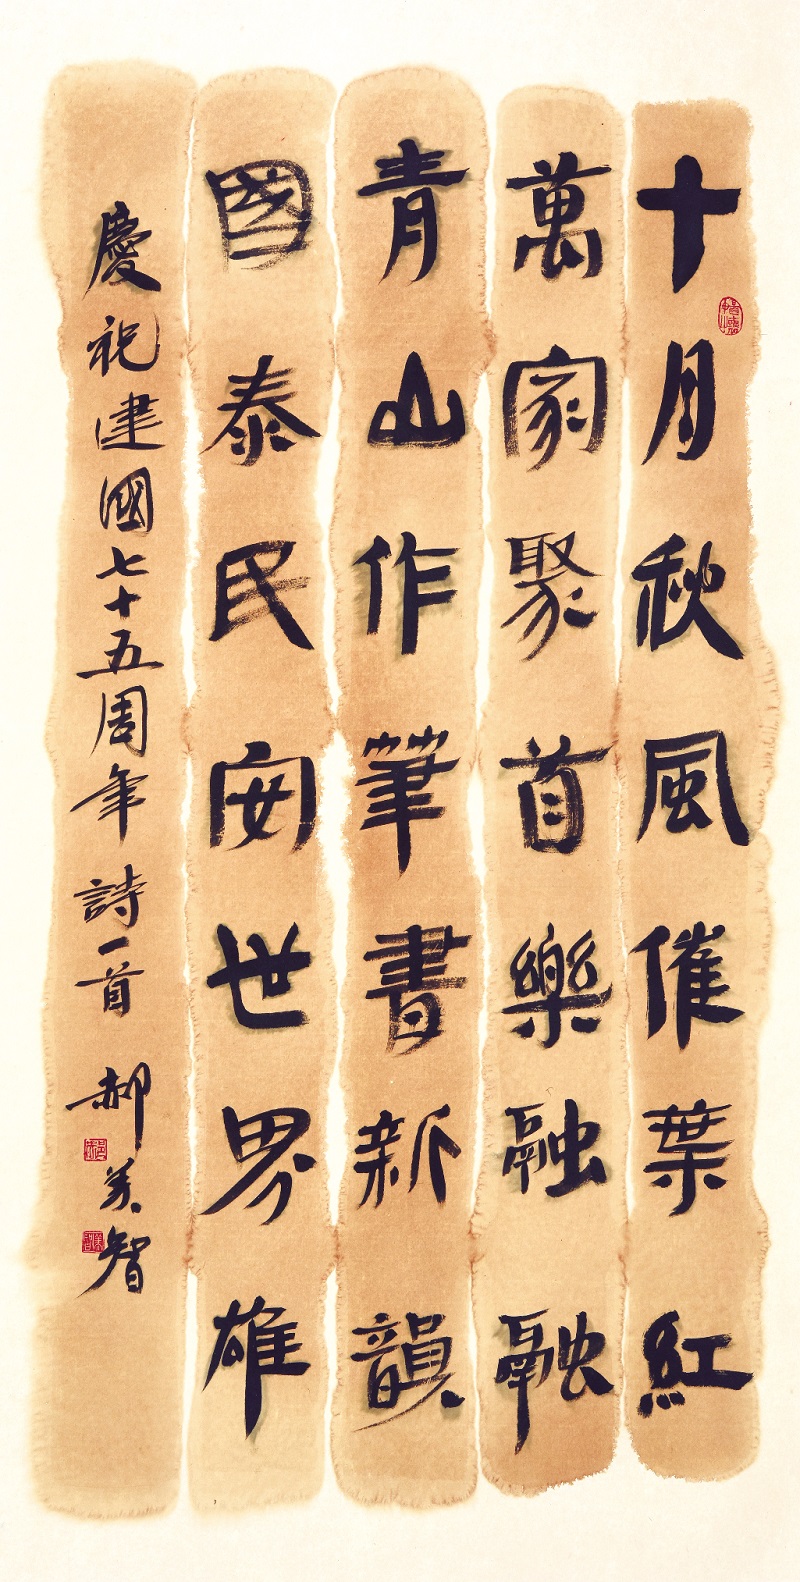 十月秋風催葉紅
萬家聚首樂融融
青山作筆書新韻
國泰民安世界雄
慶祝建國七十五周年詩一首 郝美智